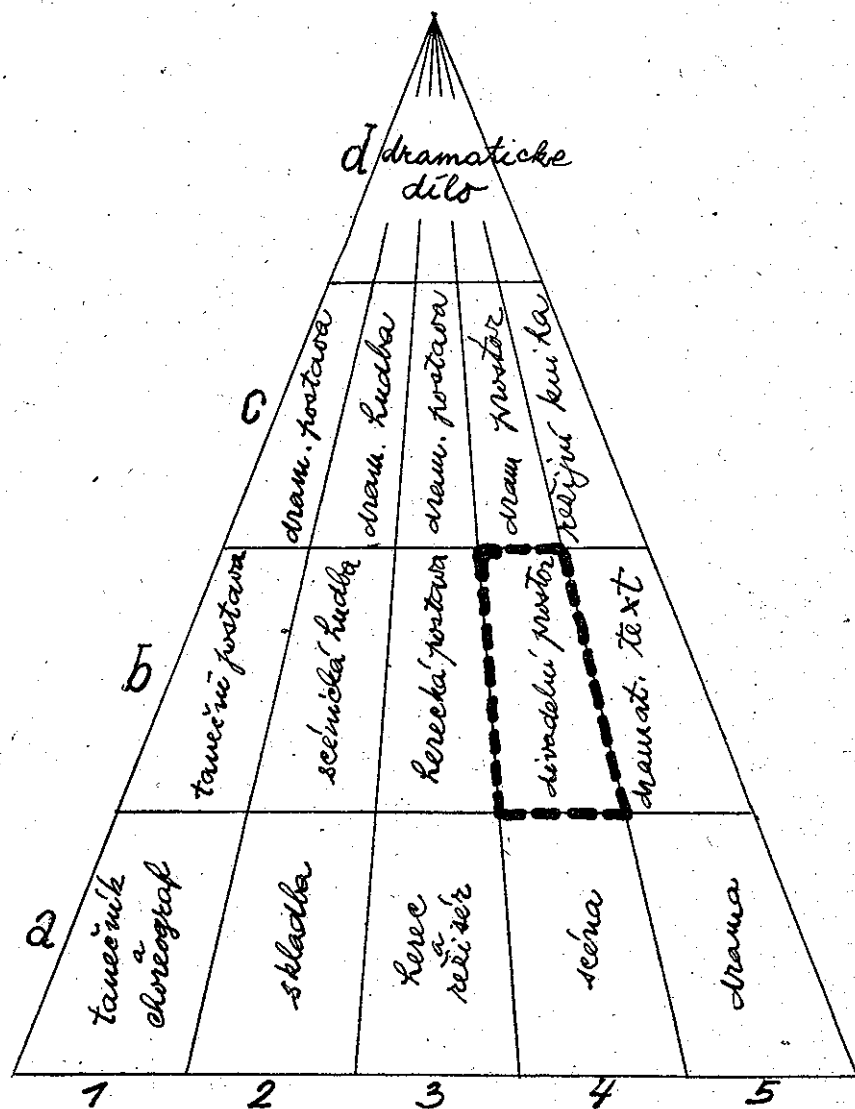 d dramaticke
dílo
c
dram. postava
dram. hudba
dram. postava
dram prostor
režijní kniha
b
taneční postava
scénická hudba
herecká postava
divadelní prostor
dramat. text
a
tanečník
a
choreograf
skladba
herec
a
režisér
scéna
drama
1 2 3 4 5